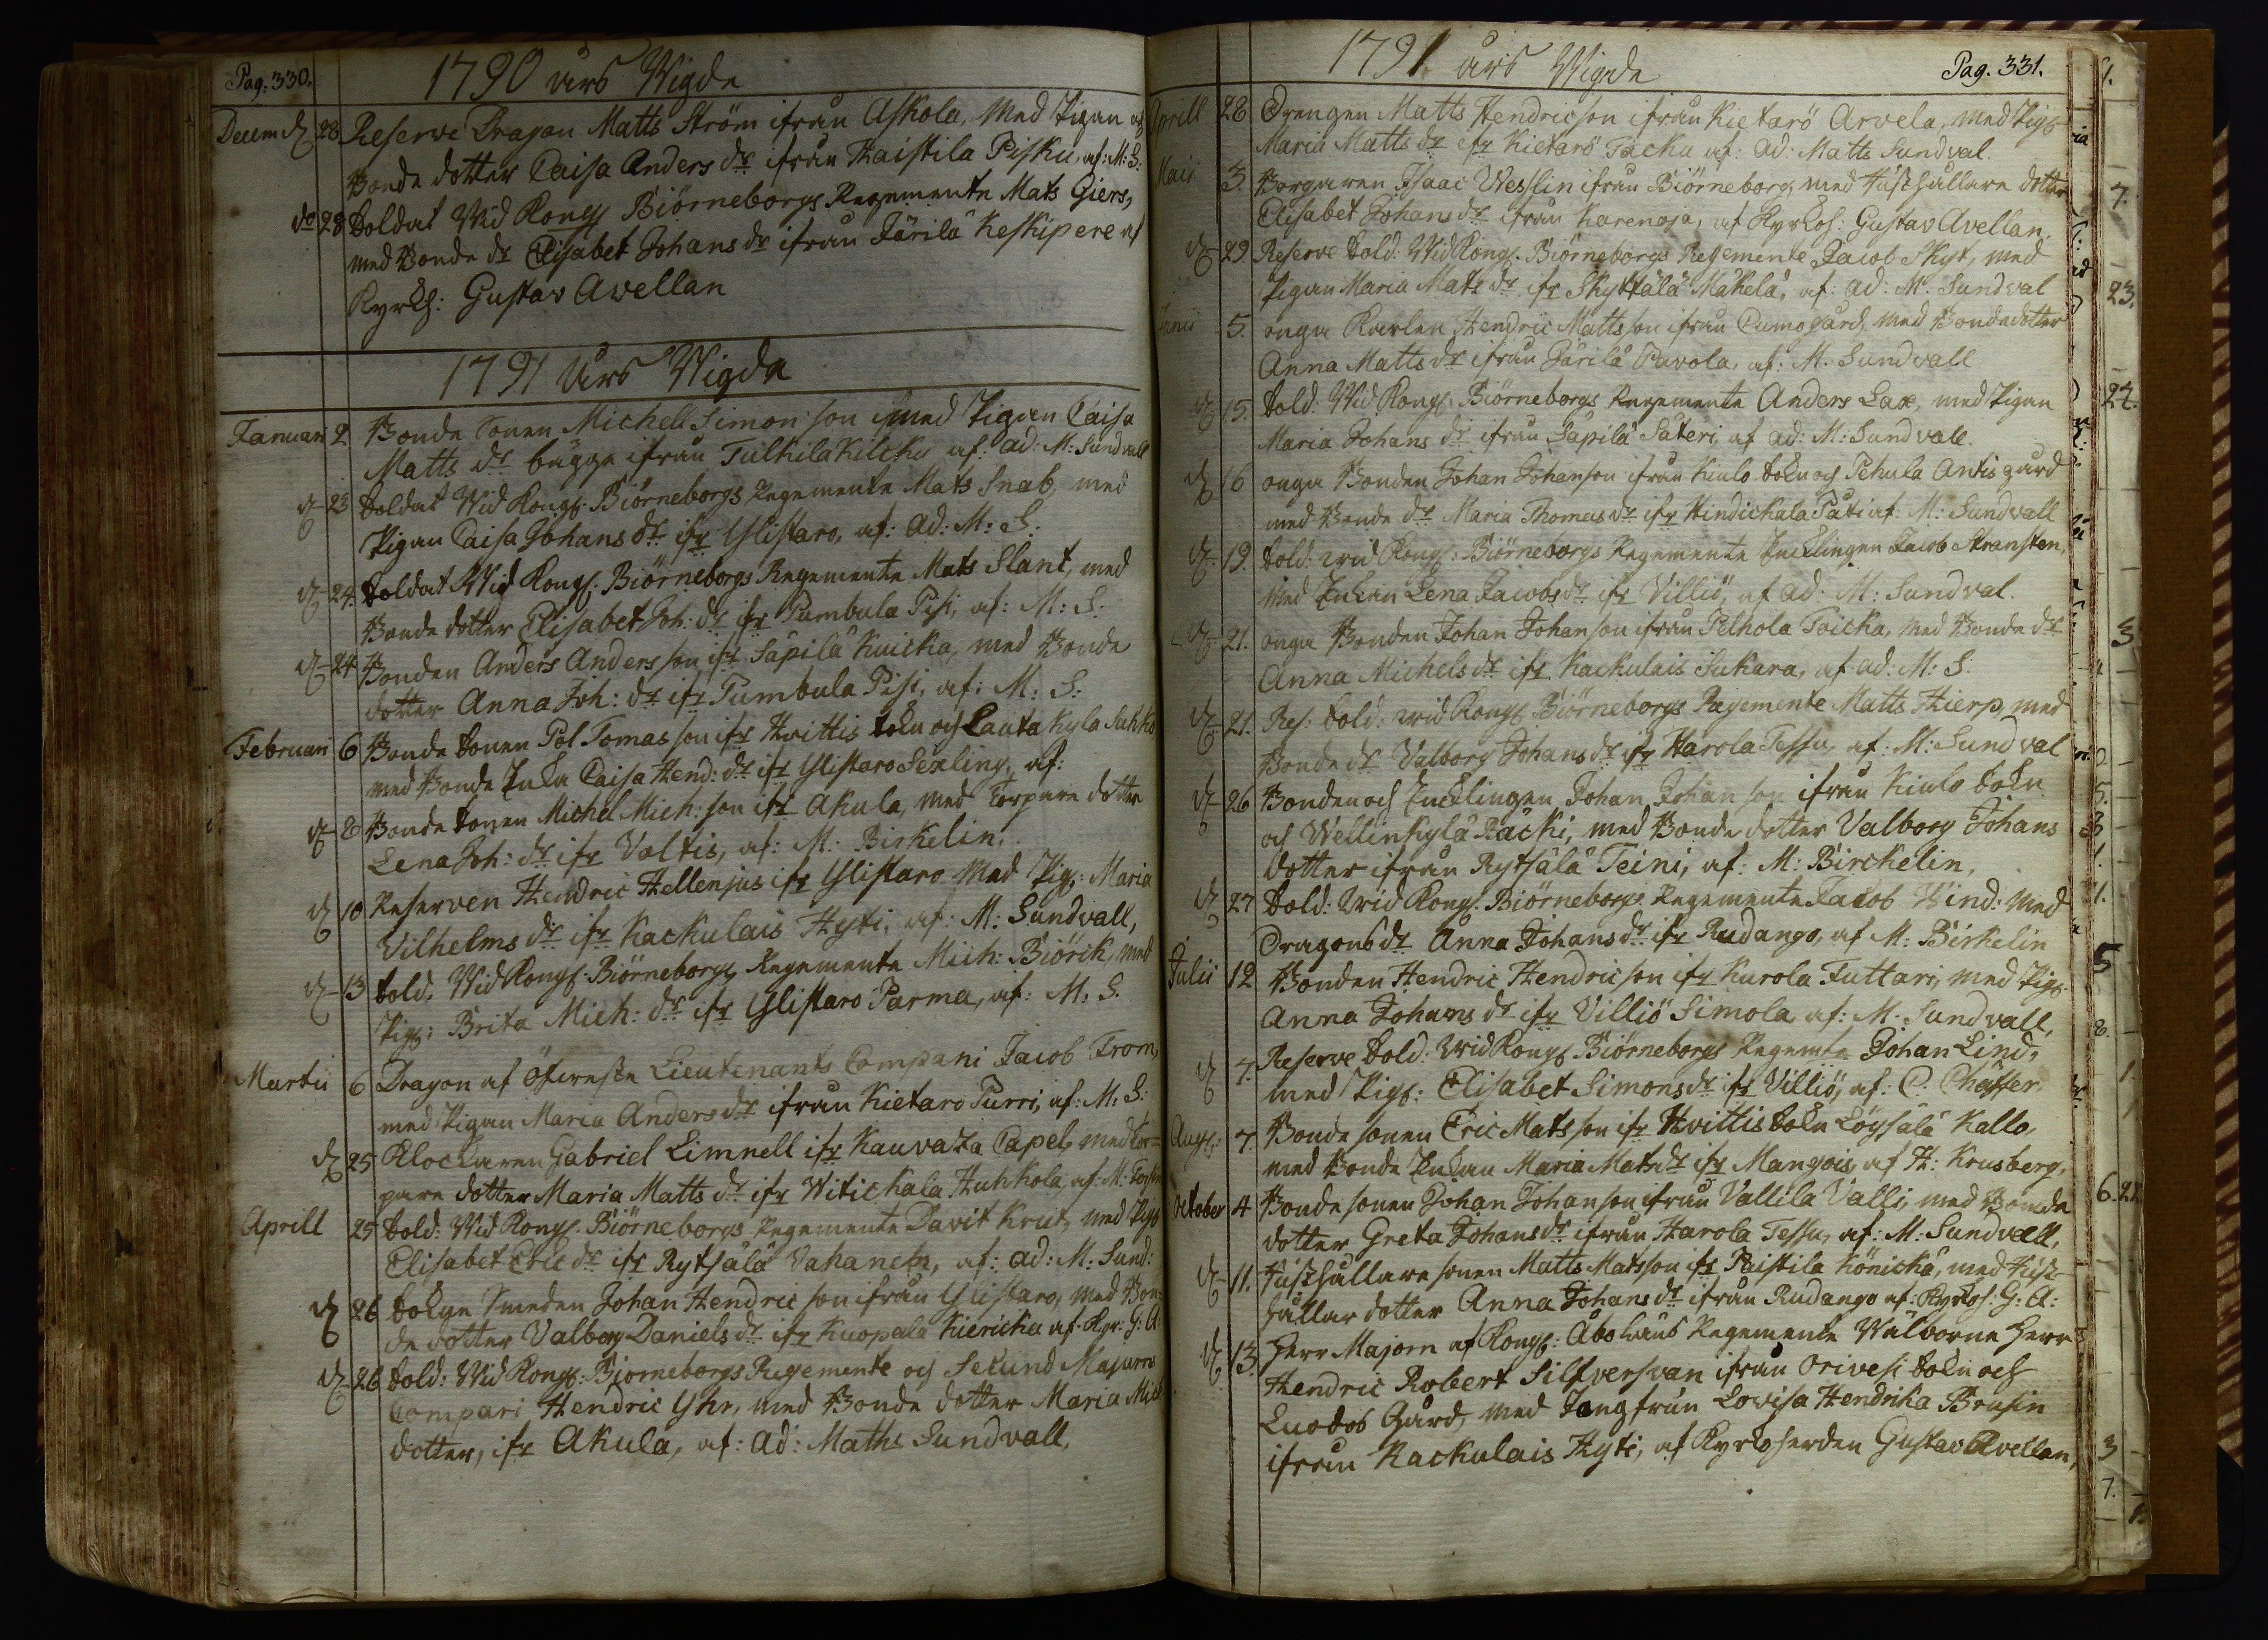 Pag: 330.
1790 års Wigde
Decem d 28 Reserve Dragon Matts Ström ifrån Askola, Med Pigan och
Bonde dotter Caisa Anders dr ifrån Haistila Pisku, af: M: S:
do 28 Soldat Wid Kongs Biörneborgs Regemente Mats Giers,
med Bonde dr Elisabet Johans dr ifrån Järilä Keskipere af
Kyrkh: Gustav Avellan
1791 Års Wigda
Januari 2 Bonde Sonen Michell Simon son med Pigan Caisa
Matts dr bägge ifrån Tulkila Kilcku af: ad: M: Sundvall
d 23 Soldat Wid Kongs. Biörneborgs Regemente Mats Snab, med
Pigan Caisa Johans dr ifr Ylistaro, af: Ad: M: S:
d 24. Soldat Wid Kongs. Biörneborgs Regemente Mats Slant, med
Bonde dotter Elisabet Joh: dr ifr Pumbula Pisi, af: M: S:
d 24 Bonden Anders Anders son ifr Säpilä Kuicka, med Bonde
dotter Anna Joh: dr ifr Pumbula Pisi, af: M: S:
Februari 6 Bonde Sonen Pol Tomas son ifr Hvittis sokn och Lauta Kyla Suhko
med Bonde Enka Caisa Hend: dr ifr Ylistaro Sexling, af:
d 8 Bonde Sonen Michel Mich: son ifr Akula, med Torpare dotter
Lena Joh: dr ifr Voltis, af: M: Birkelin,
d 10 Reserven Hendric Hellenjus ifr Ylistaro Med Pig: Maria
Vilhelms dr ifr Kackulais Hyti, af: M: Sundvall,
d 13 Sold. Wid Kongs. Biörneborgs Regemente Mich: Biörck, med
Pig: Brita Mich: dr ifr Ylistaro Parma, af: M: S.
Martii 6 Dragon af Öfverste Lieutenants Compani Jacob From,
med Pigan Maria Anders dr ifrån Kietaro Purri, af: M: S:
d 25 Klockaren Gabriel Limnell ifr Kauvatza Capel, med Tor=
pare dotter Maria Matts dr ifr Witickala Huhkola, af: M:
Aprill 25 Sold: Wid Kongs. Biörneborgs Regemente Davit Krut, med Pig
Elisabet Eric dr ifr Rytsälä Vahanen, af: ad: M: Sund:
d 26 Sokne Smeden Johan Hendric son ifrån Ylistaro, med Bon=
de dotter Valborg Daniels dr ifr Kuopala Kiericku af: Kyr: G: A:
d 26 Sold: Wid Kongs: Biorneborgs Regemente och Secund Majurns
Compani Hendric Yhr, med Bonde dotter Maria Mich
dotter, ifr Akula, af: ad: Maths Sundvall,
1791 års Wigda
Pag. 331.
Aprill 28 Drengen Matts Hendricson ifrån Kietarö Arvela, med Pigs
Maria Matts dr ifr Kietarö Packu af: ad: Matts Sundval.
Maii 3. Borgaren Isaac Wesslin ifrån Biörneborg, med Huushållare dotter
Elisabet Johans dr ifrån Karenoja, af Kyrkoh: Gustav Avellan.
d 29 Reserve Sold: Wid Kongs. Biörneborgs Regemente Jacob Skyt, med
Pigan Maria Mats dr ifr Skyttälä Mäkelä, af: ad: M: Sundval
Junii 5. onga Karlen Hendric Matts son ifrån Cumogård, med Bondedotter
Anna Matts dr ifrån Järilä Pavola, af: M. Sundvall
d 15. Sold: Wid Kongs: Biörneborgs Regemente Anders Lax, med Pigan
Maria Johans dr ifrån Säpilä Säteri, af ad: M: Sundvall.
d 16 onga Bonden Johan Johanson ifrån Kiulo Sokn och Pehula Antis gård
med Bonde dr Maria Thomas dr ifr Hindickala Päti af: M: Sundvall
d 19. Sold: wid Kongs: Biörneborgs Regemente Encklingen Jacob Stransten,
Med Enkan Lena Jacobs dr ifr Villiö, af ad: M: Sundval.
d 21. onga Bonden Johan Johanson ifrån Pelhola Toicka, med Bonde dr
Anna Michels dr ifr Kackulais Sukara, af ad: M: S.
d 21. Res: Sold: wid Kongs Biörneborgs Regemente Matts Hierp, med
Bonde dr Valborg Johans dr ifr Harola Tessu, af: M: Sundval
d 26 Bonden och Encklingen Johan Johan son ifrån Kiulo Sokn
och Wellinkylä Päcki, med Bonde dotter Valborg Johans
dotter ifrån Rytsälä Teini, af: M: Birckelin,
d 27 Sold: Wid Kongs. Biörneborgs Regemente Jacob Wind: med
Dragons dr Anna Johans dr ifr Rudango, af M: Birkelin
Julii 12 Bonden Hendric Hendric son ifr Karola Juttari, med Pigs.
Anna Johans dr ifr Villiö Simola, af: M. Sundvall,
d 4. Reserve Sold: wid Kongs Biörneborgs Regemte Johan Lind,
med Pigs: Elisabet Simons dr ifr Villiö, af: C.
Augs: 7. Bonde sonen Eric Mats son ifr Hvittis Sokn Löysälä Kallo,
med Bonde Enkan Maria Mats dr ifr Mangois, af H: Krusberg,
October 4 Bonde sonen Johan Johanson ifrån Vallila Valli, med Bonde
dotter Greta Johans dr ifrån Harola Tessu, af: M: Sundvall,
d 11. Huushållare sonen Matts Matsson ifr Paistila Könickä, med Huus=
hållar dotter Anna Johans dr ifrån Rudango af: Kyrkoh: G: A:
d 13. Herr Majorn af Kongs: Åbo Läns Regemente Wälborne Herr
Hendric Robert Silfversvan ifrån Orivesi Sokn och
Luodos Gård, med Jongfrun Lovisa Hendrika Brusin
ifrån Kackulais Hyti, af Kyrkoherden Gustav Avellan,